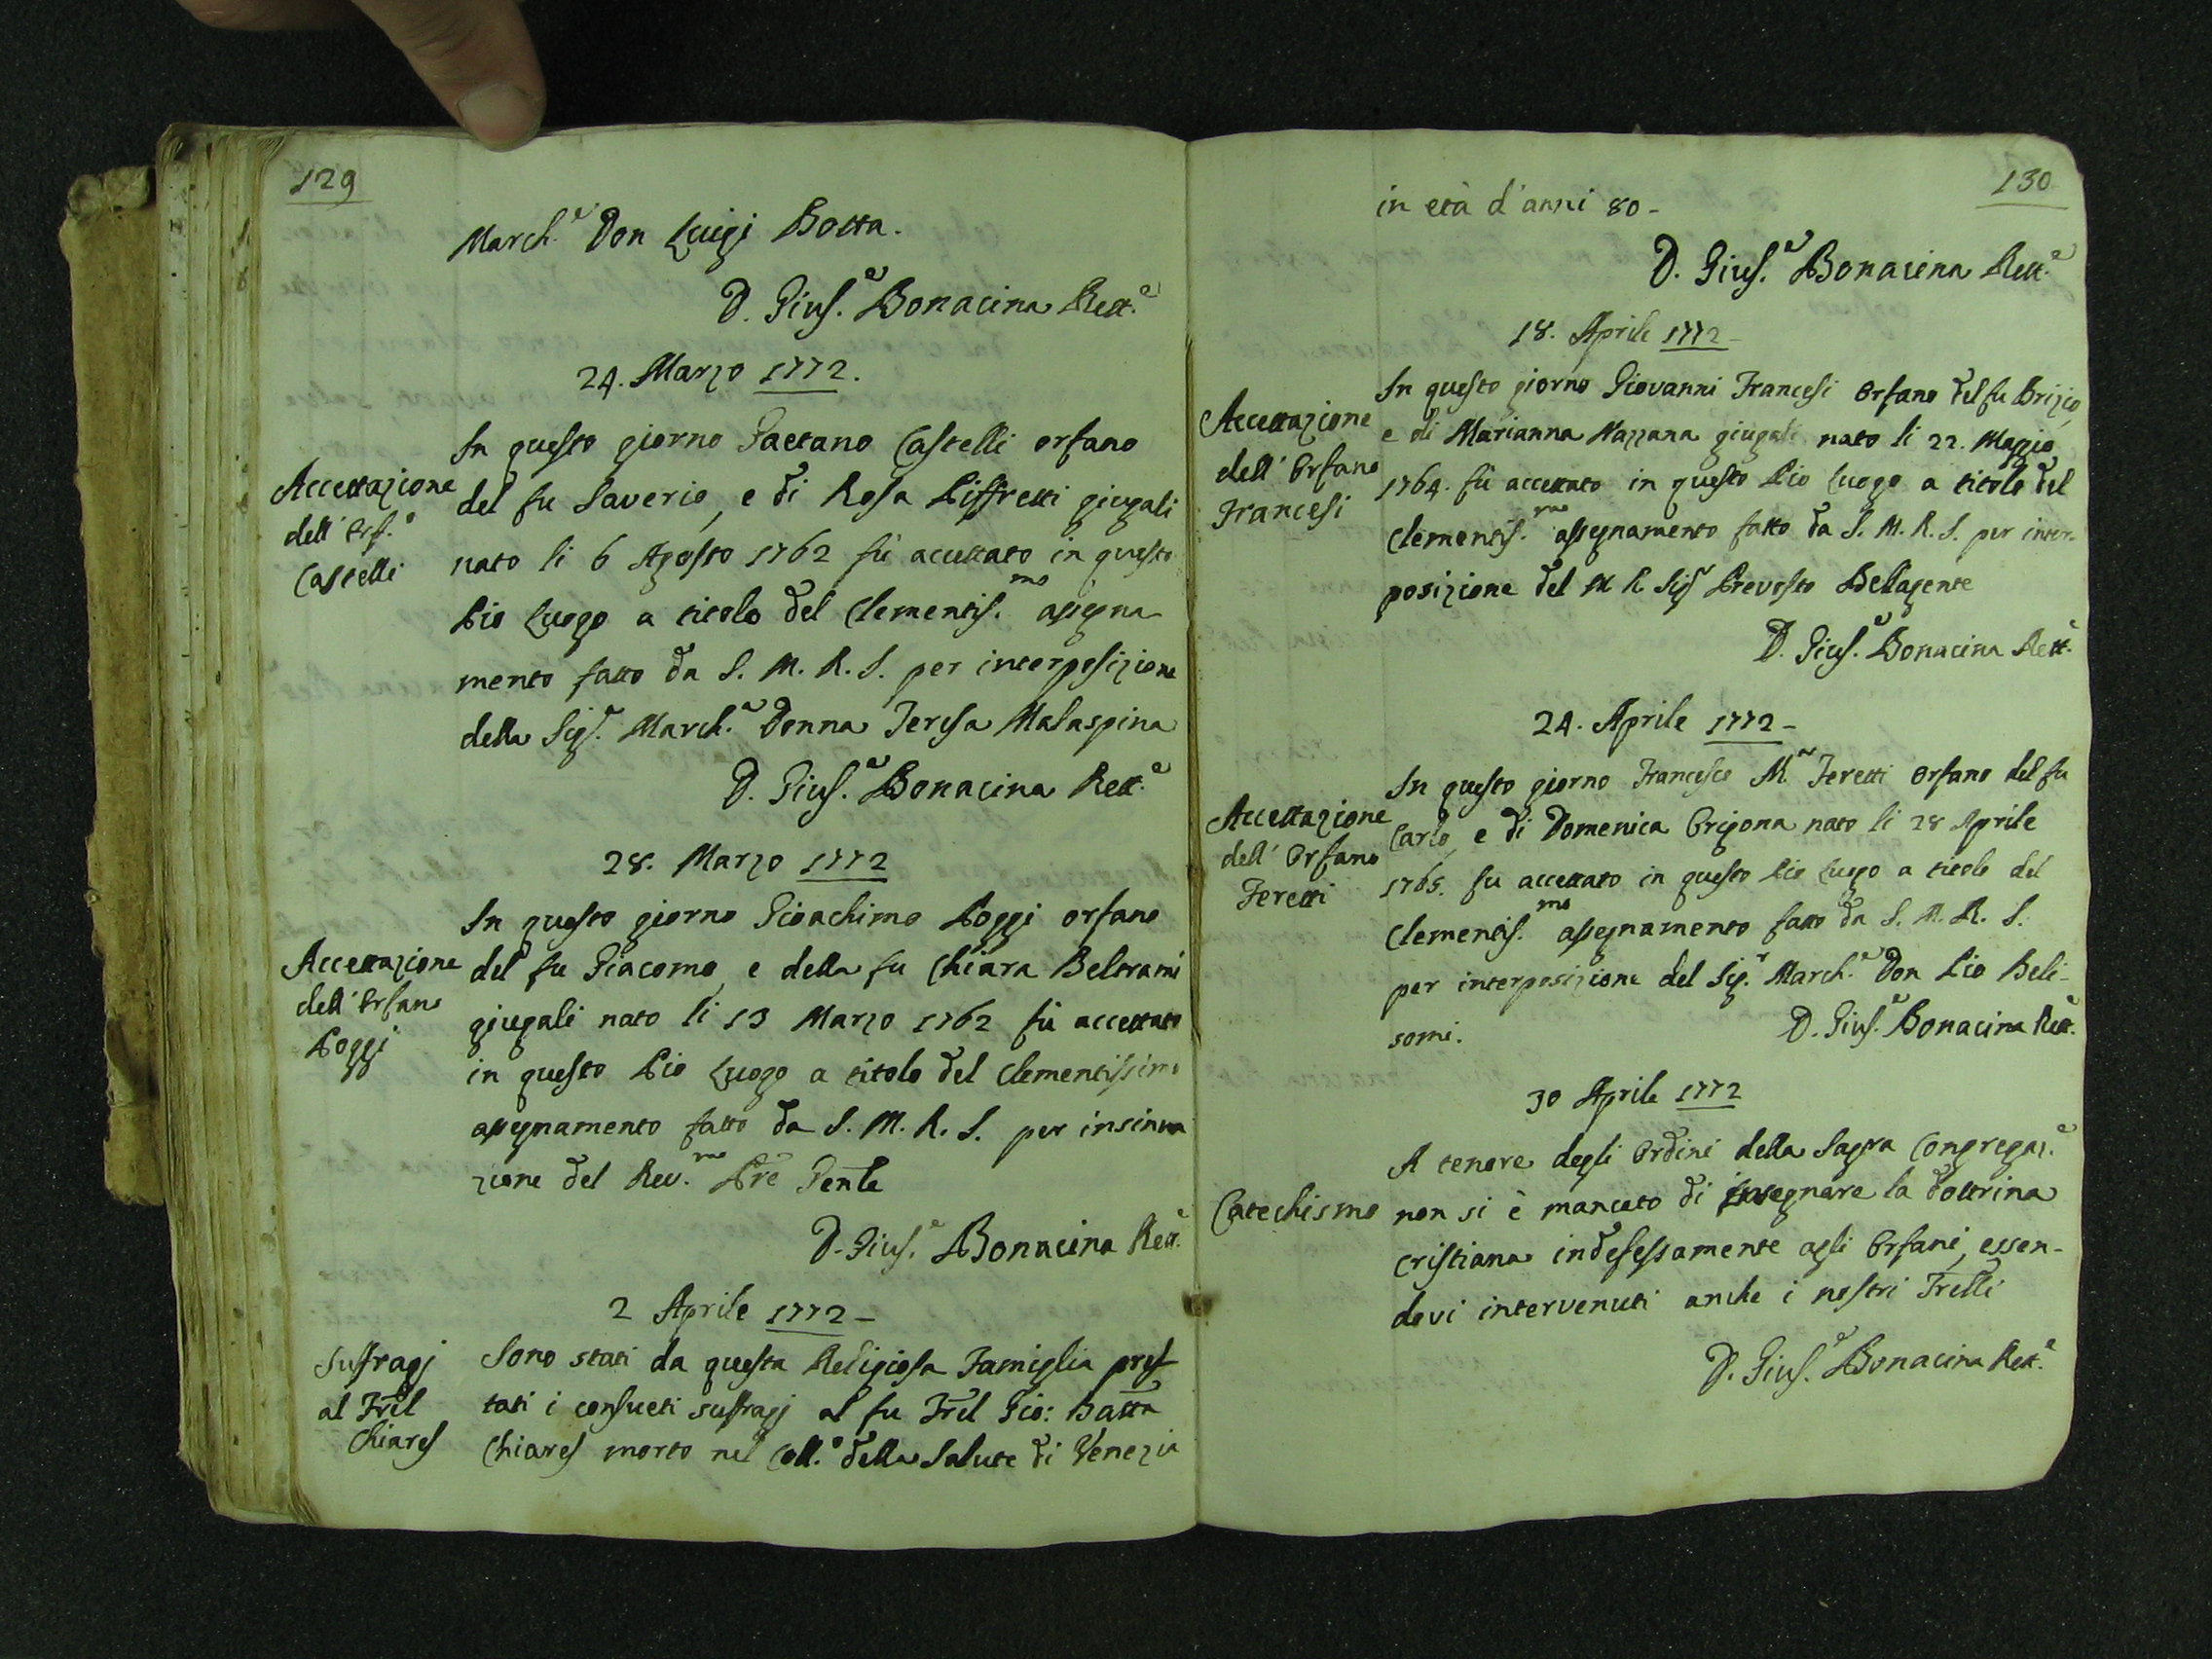 129
March.e Don Luigi Botta.
D. Gius.e Bonacina Rett.e
24. Marzo 1772.
Accettazione
dell' Orf.o
Castelli
In questo giorno Gaetano Castelli orfano
del fu Saverio, e di Rosa Piffretti giugali
nato li 6 Agosto 1762 fù accettato in questo
Pio Luogo a titolo del Clementis.mo assegna
mento fatto da S. M. R. I. per interposizione
della Sig.r March.e Donna Teresa Malaspina
D. Gius.e Bonacina Rett.e
28. Marzo 1772
Accettazione
dell' Orfano
Poggi
In questo giorno Gioachimo Poggi orfano
del fu Giacomo, e della fu Chiara Beltrami
giugali nato li 13 Marzo 1762 fù accettato
in questo Pio Luogo a titolo del Clementissimo
assegnamento fatto da S. M. R. I. per insinua
zione del Rev.mo Pre Gentle
D. Gius.e Bonacina Rett.e
2 Aprile 1772 -
Suffragj
al Frel
Chiares
Sono stati da questa Religiosa Famiglia pres
tati i consueti suffragj al fu Frel Gio: Batta
Chiares morto nel Coll.o della Salute di Venezia
130
in età d'anni 80 -
D. Gius.e Bonacina Rett.e
18. Aprile 1772 -
Accettazione
dell' Orfano
Francesi
In questo giorno Giovanni Francesi Orfano del fu Brizio,
e di Marianna Nazzana giugali nato li 22. Maggio
1764. fù accettato in questo Pio Luogo a titolo del
Clementis.mo assegnamento fatto da S. M. R. I. per inter-
posizione del M R Sigr Prevosto Bellagente
D. Gius.e Bonacina Rett.e
24. Aprile 1772 -
Accettazione
dell' Orfano
Feretti
In questo giorno Francesco M.a Feretti Orfano del fu
Carlo, e di Domenica Origona nato li 28 Aprile
1765. fu accettato in questo Pio Luogo a titolo del
Clementis.mo assegnamento fatto da S. M. R. I.
per interposizione del Sig.r March.e Don Pio Beli-
somi.
D. Gius.e Bonacina Rett.e
30 Aprile 1772
Catechismo
A tenore degli Ordini della Sagra Congregaz.e
non si è mancato di insegnare la dottrina
cristiana indefessamente agli Orfani, essen-
dovi intervenuti anche i nostri Frelli
D. Gius.e Bonacina Rett.e